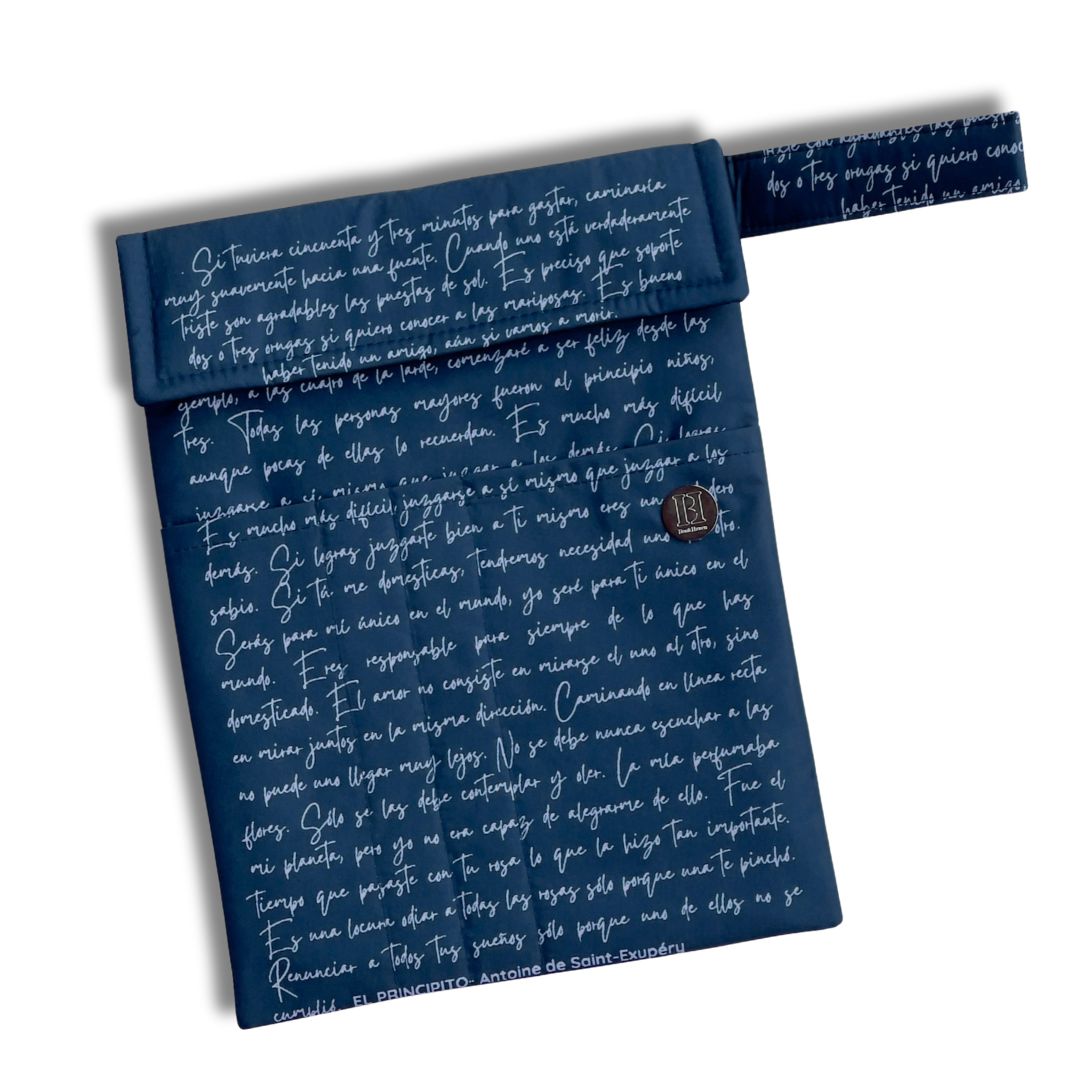 Si tuviera cincuenta y tres minutos para gastar, caminaría
muy suavemente hacia una fuente. Cuando uno está verdaderamente
triste son agradables las puestas de sol. Es preciso que soporte
dos o tres orugas si quiero conocer a las mariposas. Es bueno
haber tenido un amigo, aún si vamos a morir.
ejemplo, a las cuatro de la tarde, comenzaré a ser feliz desde las
tres. Todas las personas mayores fueron al principio niños,
aunque pocas de ellas lo recuerdan. Es mucho más difícil
juzgarse a sí mismo que juzgar a los demás. Si logras
Es mucho más difícil juzgarse a sí mismo que juzgar a los
demás. Si logras juzgarte bien a ti mismo eres un dero
sabio. Si tú me domesticas, tendremos necesidad uno otro.
Serás para mí único en el mundo, yo seré para ti único en el
mundo. Eres responsable para siempre de lo que has
domesticado. El amor no consiste en mirarse el uno al otro, sino
en mirar juntos en la misma dirección. Caminando en línea recta
no puede uno llegar muy lejos. No se debe nunca escuchar a las
flores. Sólo se las debe contemplar y oler. La mía perfumaba
mi planeta, pero yo no era capaz de alegrarme de ello. Fue el
tiempo que pasaste con tu rosa lo que la hizo tan importante.
Es una locura odiar a todas las rosas sólo porque una te pinchó.
Renunciar a todos tus sueños sólo porque uno de ellos no se
cumplió. EL PRINCIPITO- Antoine de Saint-Exupéry
triste son agradables las puest
dos o tres orugas si quiero conoc
haber tenido un amigo,
BH